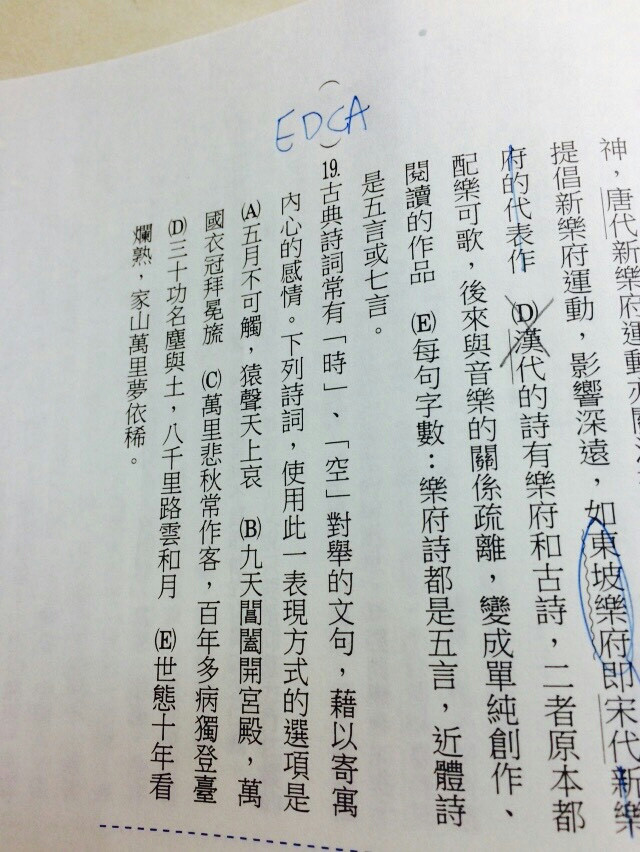 神，唐代新樂府運動
提倡新樂府運動，影響深遠，如東坡樂府即宋代新樂
府的代表作 (D)漢代的詩有樂府和古詩，二者原本都
配樂可歌，後來與音樂的關係疏離，變成單純創作、
閱讀的作品 (E)每句字數：樂府詩都是五言，近體詩
是五言或七言。
( EDCA )19.古典詩詞常有「時」、「空」對舉的文句，藉以寄寓
內心的感情。下列詩詞，使用此一表現方式的選項是
(A)五月不可觸，猿聲天上哀 (B)九天閶闔開宮殿，萬
國衣冠拜冕旒 (C)萬里悲秋常作客，百年多病獨登臺
(D)三十功名塵與土，八千里路雲和月 (E)世態十年看
爛熟，家山萬里夢依稀。